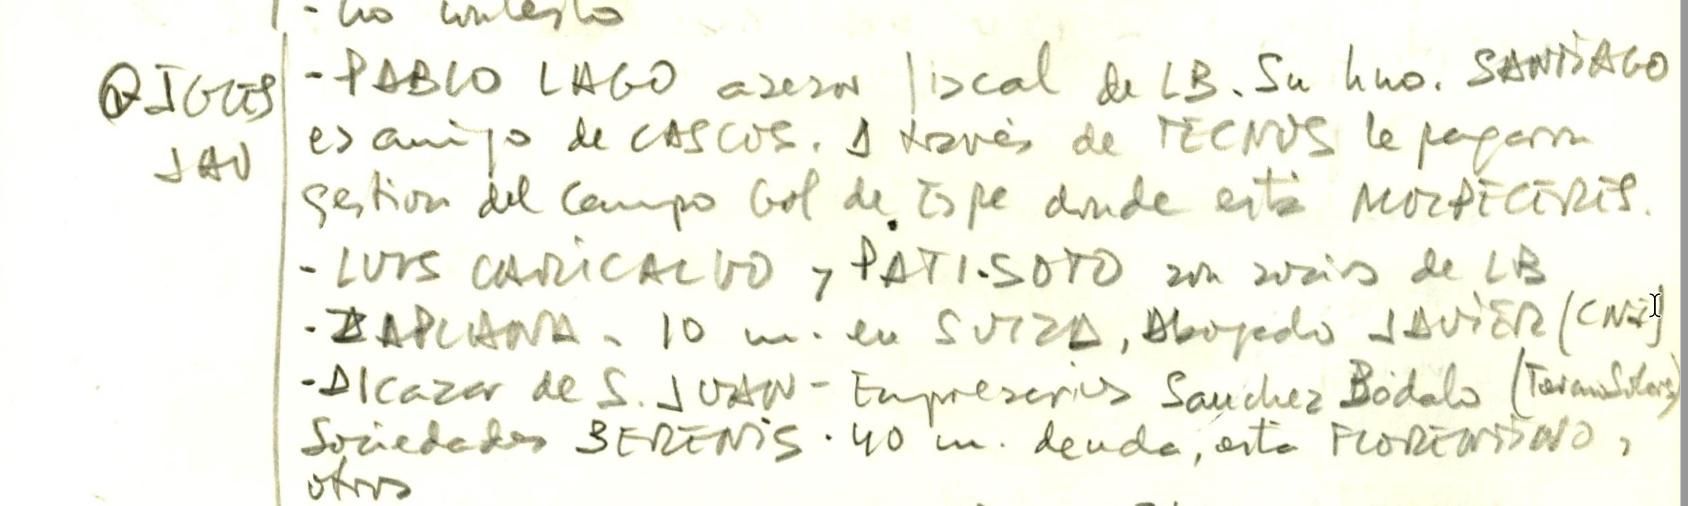 - no contesto
- PABLO LAGO asesor fiscal de LB. Su hno. SANTIAGO
es amigo de CASCOS. A través de TECNOS le pagaron
gestion del Campo Gol de Espe donde está MOLPECERES.
- LUIS CARICALVO y PATI-SOTO son socios de LB
- ZAPLANA - 10 m. en SUIZA, Abogado JAVIER (CNI)
- Alcazar de S. JUAN - Empresarios Sanchez Bódalo (
Sociedades BERENIS. 40 m. deuda, está FLORENTINO y
otros
JAV